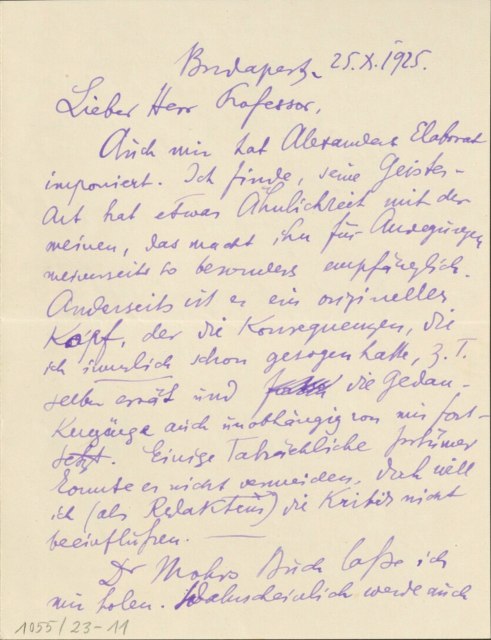 Budapest, 25.X.1925.
Lieber Herr Professor,
Auch mir hat Alexanders Elaborat
imponiert. Ich finde, seine Geistes-
Art hat etwas Ähnlichkeit mit der
meinen, das macht ihn für Anregungen
meinerseits so besonders empfänglich.
Anderseits ist er ein origineller
Kopf, der die Konsequenzen, die
ich innerlich schon gezogen hatte, z. T.
selber errät und die Gedan-
kengänge auch unabhängig von mir fort-
setzt. Einige Tatsächliche Irrtümer
konnte er nicht vermeiden, doch will
ich (als Redakteur) die Kritik nicht
beeinflußen.
Dr Mohrs Buch laße ich
mir holen. Wahrscheinlich werde auch
1055/23-11